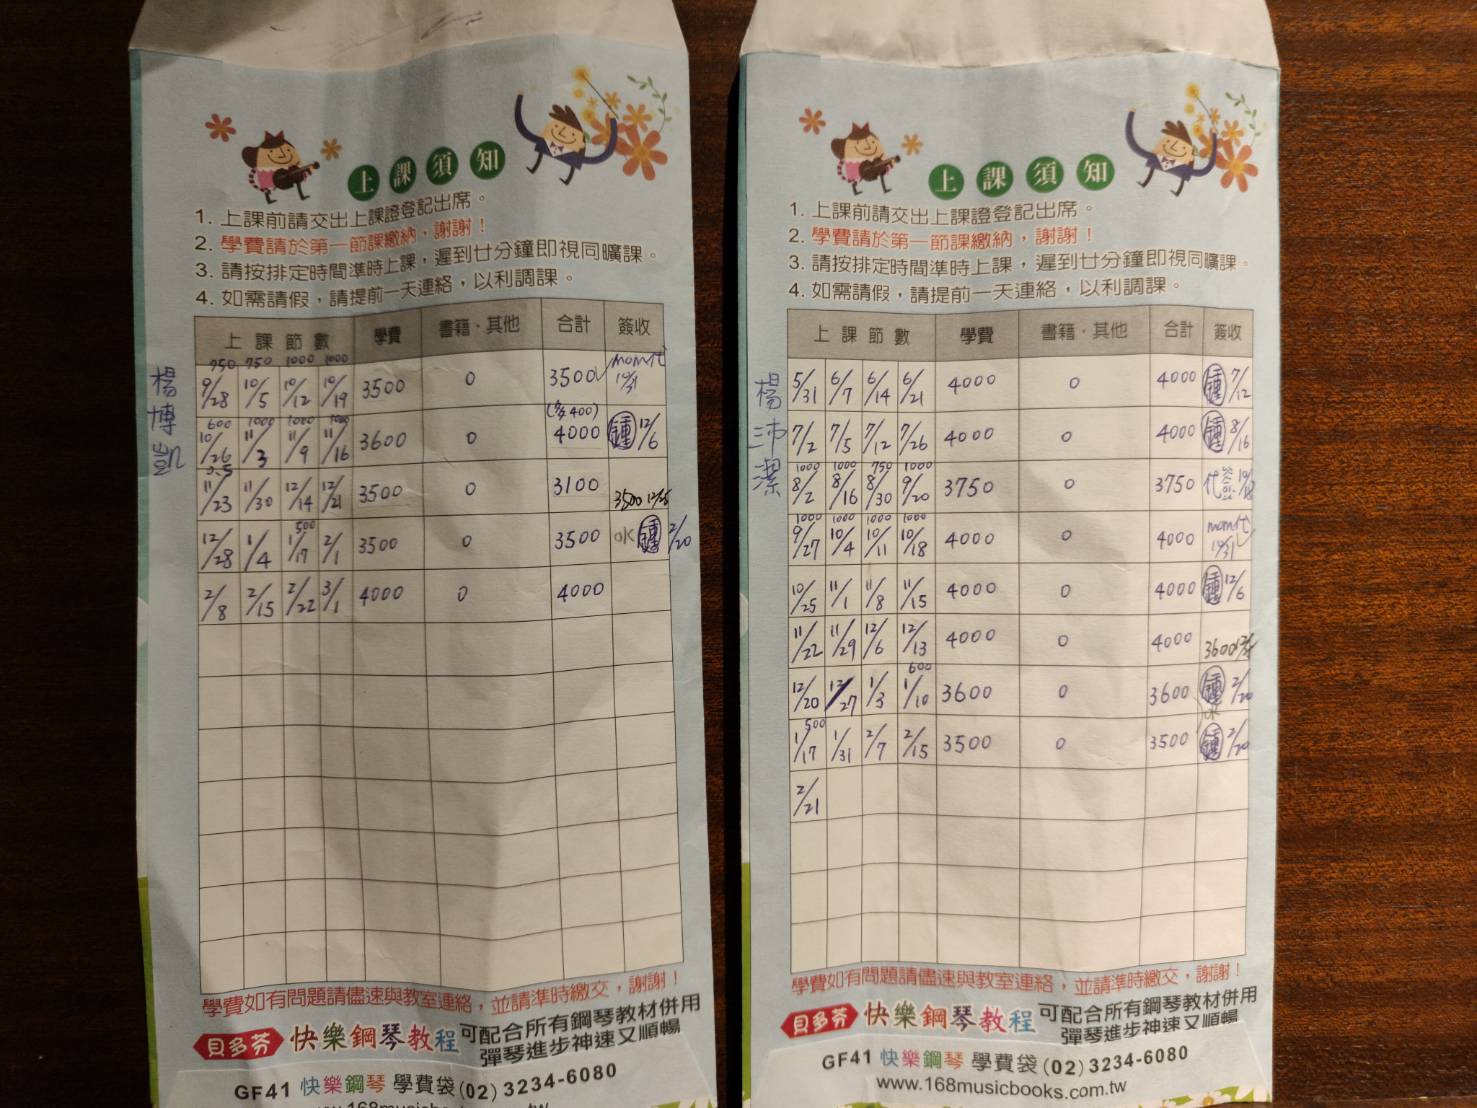 上課須知
1. 上課前請交出上課證登記出席。
2. 學費請於第一節課繳納，謝謝！
3. 請按排定時間準時上課，遲到廿分鐘即視同曠課。
4. 如需請假，請提前一天連絡，以利調課。
上課節數 學費 書籍・其他 合計 簽收
楊博凱
750 750 1000 1000 mom代
9/28 10/5 10/12 10/19 3500 0 3500✓ 10/31
600 1000 1000 1000
10/26 11/3 11/9 11/16 3600 0 4000 鍾 12/6
0.5
11/23 11/30 12/14 12/21 3500 0 3100 3500
500
12/28 1/4 1/17 2/1 3500 0 3500 ok 鍾 2/20
2/8 2/15 2/22 3/1 4000 0 4000
學費如有問題請儘速與教室連絡，並請準時繳交，謝謝！
貝多芬 快樂鋼琴教程 可配合所有鋼琴教材併用
彈琴進步神速又順暢
GF41 快樂鋼琴 學費袋 (02) 3234-6080
上課須知
1. 上課前請交出上課證登記出席。
2. 學費請於第一節課繳納，謝謝！
3. 請按排定時間準時上課，遲到廿分鐘即視同曠課。
4. 如需請假，請提前一天連絡，以利調課。
上課節數 學費 書籍・其他 合計 簽收
楊沛潔
5/31 6/7 6/14 6/21 4000 0 4000 鍾 7/12
7/2 7/5 7/12 7/26 4000 0 4000 鍾 8/16
1000 1000 750 1000
8/2 8/16 8/30 9/20 3750 0 3750 代簽
1000 1000 1000 1000 mom代
9/27 10/4 10/11 10/18 4000 0 4000 10/31
10/25 11/1 11/8 11/15 4000 0 4000 鍾 12/6
11/22 11/29 12/6 12/13 4000 0 4000 3600
600
12/20 12/27 1/3 1/10 3600 0 3600 鍾 2/20
500 ok
1/17 1/31 2/7 2/15 3500 0 3500 鍾 2/20
2/21
學費如有問題請儘速與教室連絡，並請準時繳交，謝謝！
貝多芬 快樂鋼琴教程 可配合所有鋼琴教材併用
彈琴進步神速又順暢
GF41 快樂鋼琴 學費袋 (02) 3234-6080
www.168musicbooks.com.tw